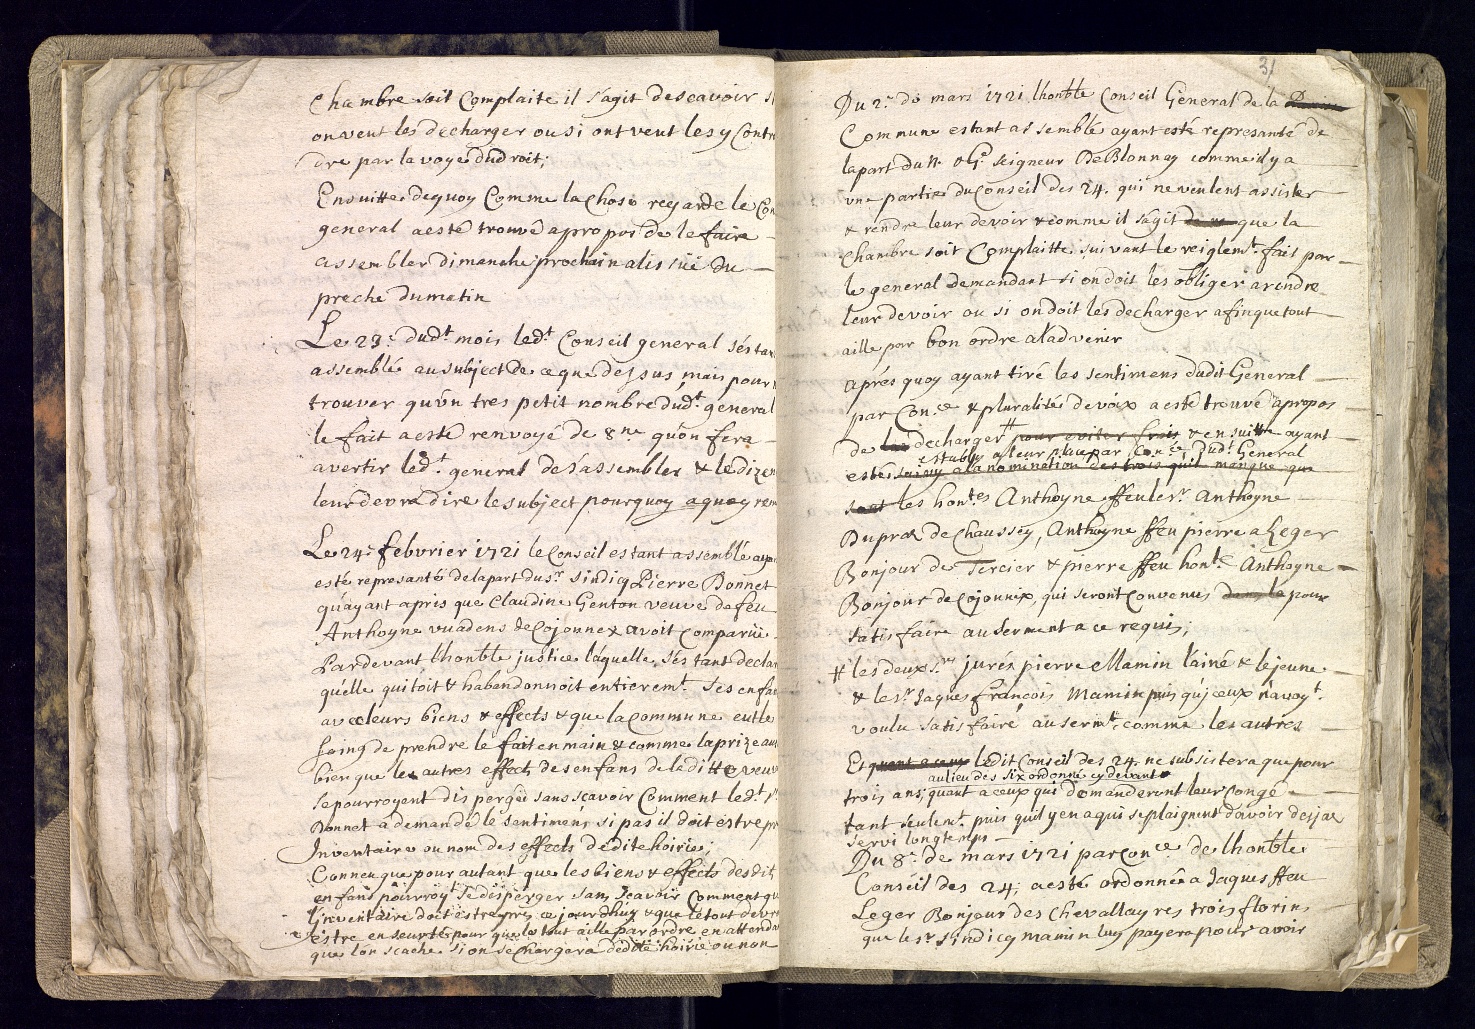 Chambre soit Complaite il s'agit de scavoir si
on veut les decharger ou si ont veut les y Contre
dre par la voye du droit;
Ensuitte de quoy Comme la Chose regarde le Con
general a esté trouvé a propos de le faire
assembler dimanche prochain a lissüe du
preche du matin
Le 23e dudt mois ledt Conseil general s'estant
assemblé au subject de ce que dessus, mais pour
trouver qu'ún tres petit nombre dudt general
le fait a esté renvoyé de 8ne qu'on fera
avertir ledt general de s'assembler & le dizen
leur devra dire le subject pourquoy
Le 24e febvrier 1721 le Conseil estant assemblé ayant
esté represanté de la part du sr sindicq Pierre Bonnet
qu'ayant apris que Claudine Genton veuve de feu
Anthoyne vuadens de Cojonnex avoit comparüe
Pardevant l'honble justice laquelle, s'estant decla
qu'elle quitoit & habandonnoit entieremt ses enfan
avec leurs biens & effects & que la Commune eut le
soing de prendre le fait en main & comme la prize au
bien que les autres effects des enfans de la ditte veuve
se pourroyent disperger sans scavoir Comment ledt sr
Bonnet a demandé le sentiment si pas il doit estre pr
Inventaire ou nom des effects dédite hoirie;
Conneu que pour autant que les biens & effects desdit
enfans pourroyt se disperger sans scavoir Comment qu
l'inventaire doit estre pris ce jourdhuy & que le tout devra
estre en seurté pour que le tout aille par ordre en attenda
que l'on scache si on se Chargera dédite hoirie ou non
31
Du 2e de mars 1721 l'honble Conseil General de la
Commune estant assemblé ayant esté represanté de
la part du N. & Ge Seigneur De Blonnay comme il y a
une partie du Conseil des 24. qui ne veulent assister
& rendre leur devoir & comme il s'agit que la
Chambre soit Complaitte suivant le reiglemt fait par
le general demandant si on doit les obliger a rendre
leur devoir ou si on doit les decharger afin que tout
aille par bon ordre a ladvenir
Aprés quoy ayant tiré les sentimens dudit General
par Con.ce & pluralités de voix a esté trouvé apropos
de les decharger # pour eviter frais & ensuitte ayant
establÿ a leur place par Con.ce dudt General
estés suivy a la nomination des trois qu'il manque qui
sont les hontes Anthoyne ffeu le sr Anthoyne
Dupraz de Chaussey, Anthoyne ffeu pierre a Leger
Bonjour de Tercier & pierre ffeu honle Anthoyne
Bonjour de Cojonnex, qui seront Convenus pour
satisfaire au serment a ce requis;
# les deux srs jurés pierre Mamin l'ainé & le jeune
& le sr Jaques françois Mamin puis qu'jceux n'avoyt
voulu satisfaire au sermt comme les autres
Et quant a ceux ledit Conseil des 24. ne subsistera que pour
au lieu des six ordonné cy devant
trois ans; quant a ceux qui demanderont leur Congé
tant seulemt, puis qu'il y en a qui se plaignent d'avoir desja
servi longtemps
Du 8e de mars 1721 par Con.ce de l'honble
Conseil des 24; a esté ordonnée a Jaques ffeu
Leger Bonjour des Chevallayres trois florins
que le sr sindicq mamin luy payera pour avoir